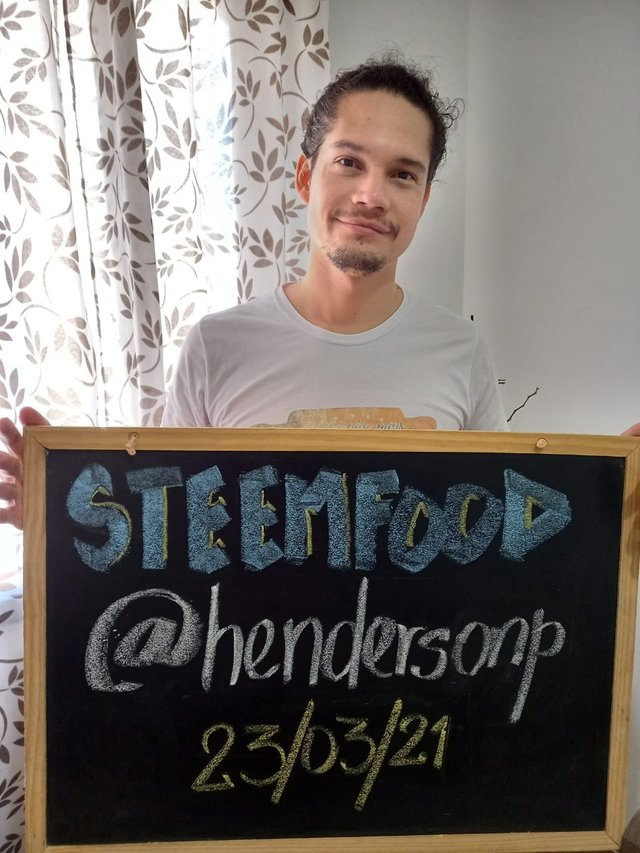 STEEMFOOD
@hendersonp
23/03/21